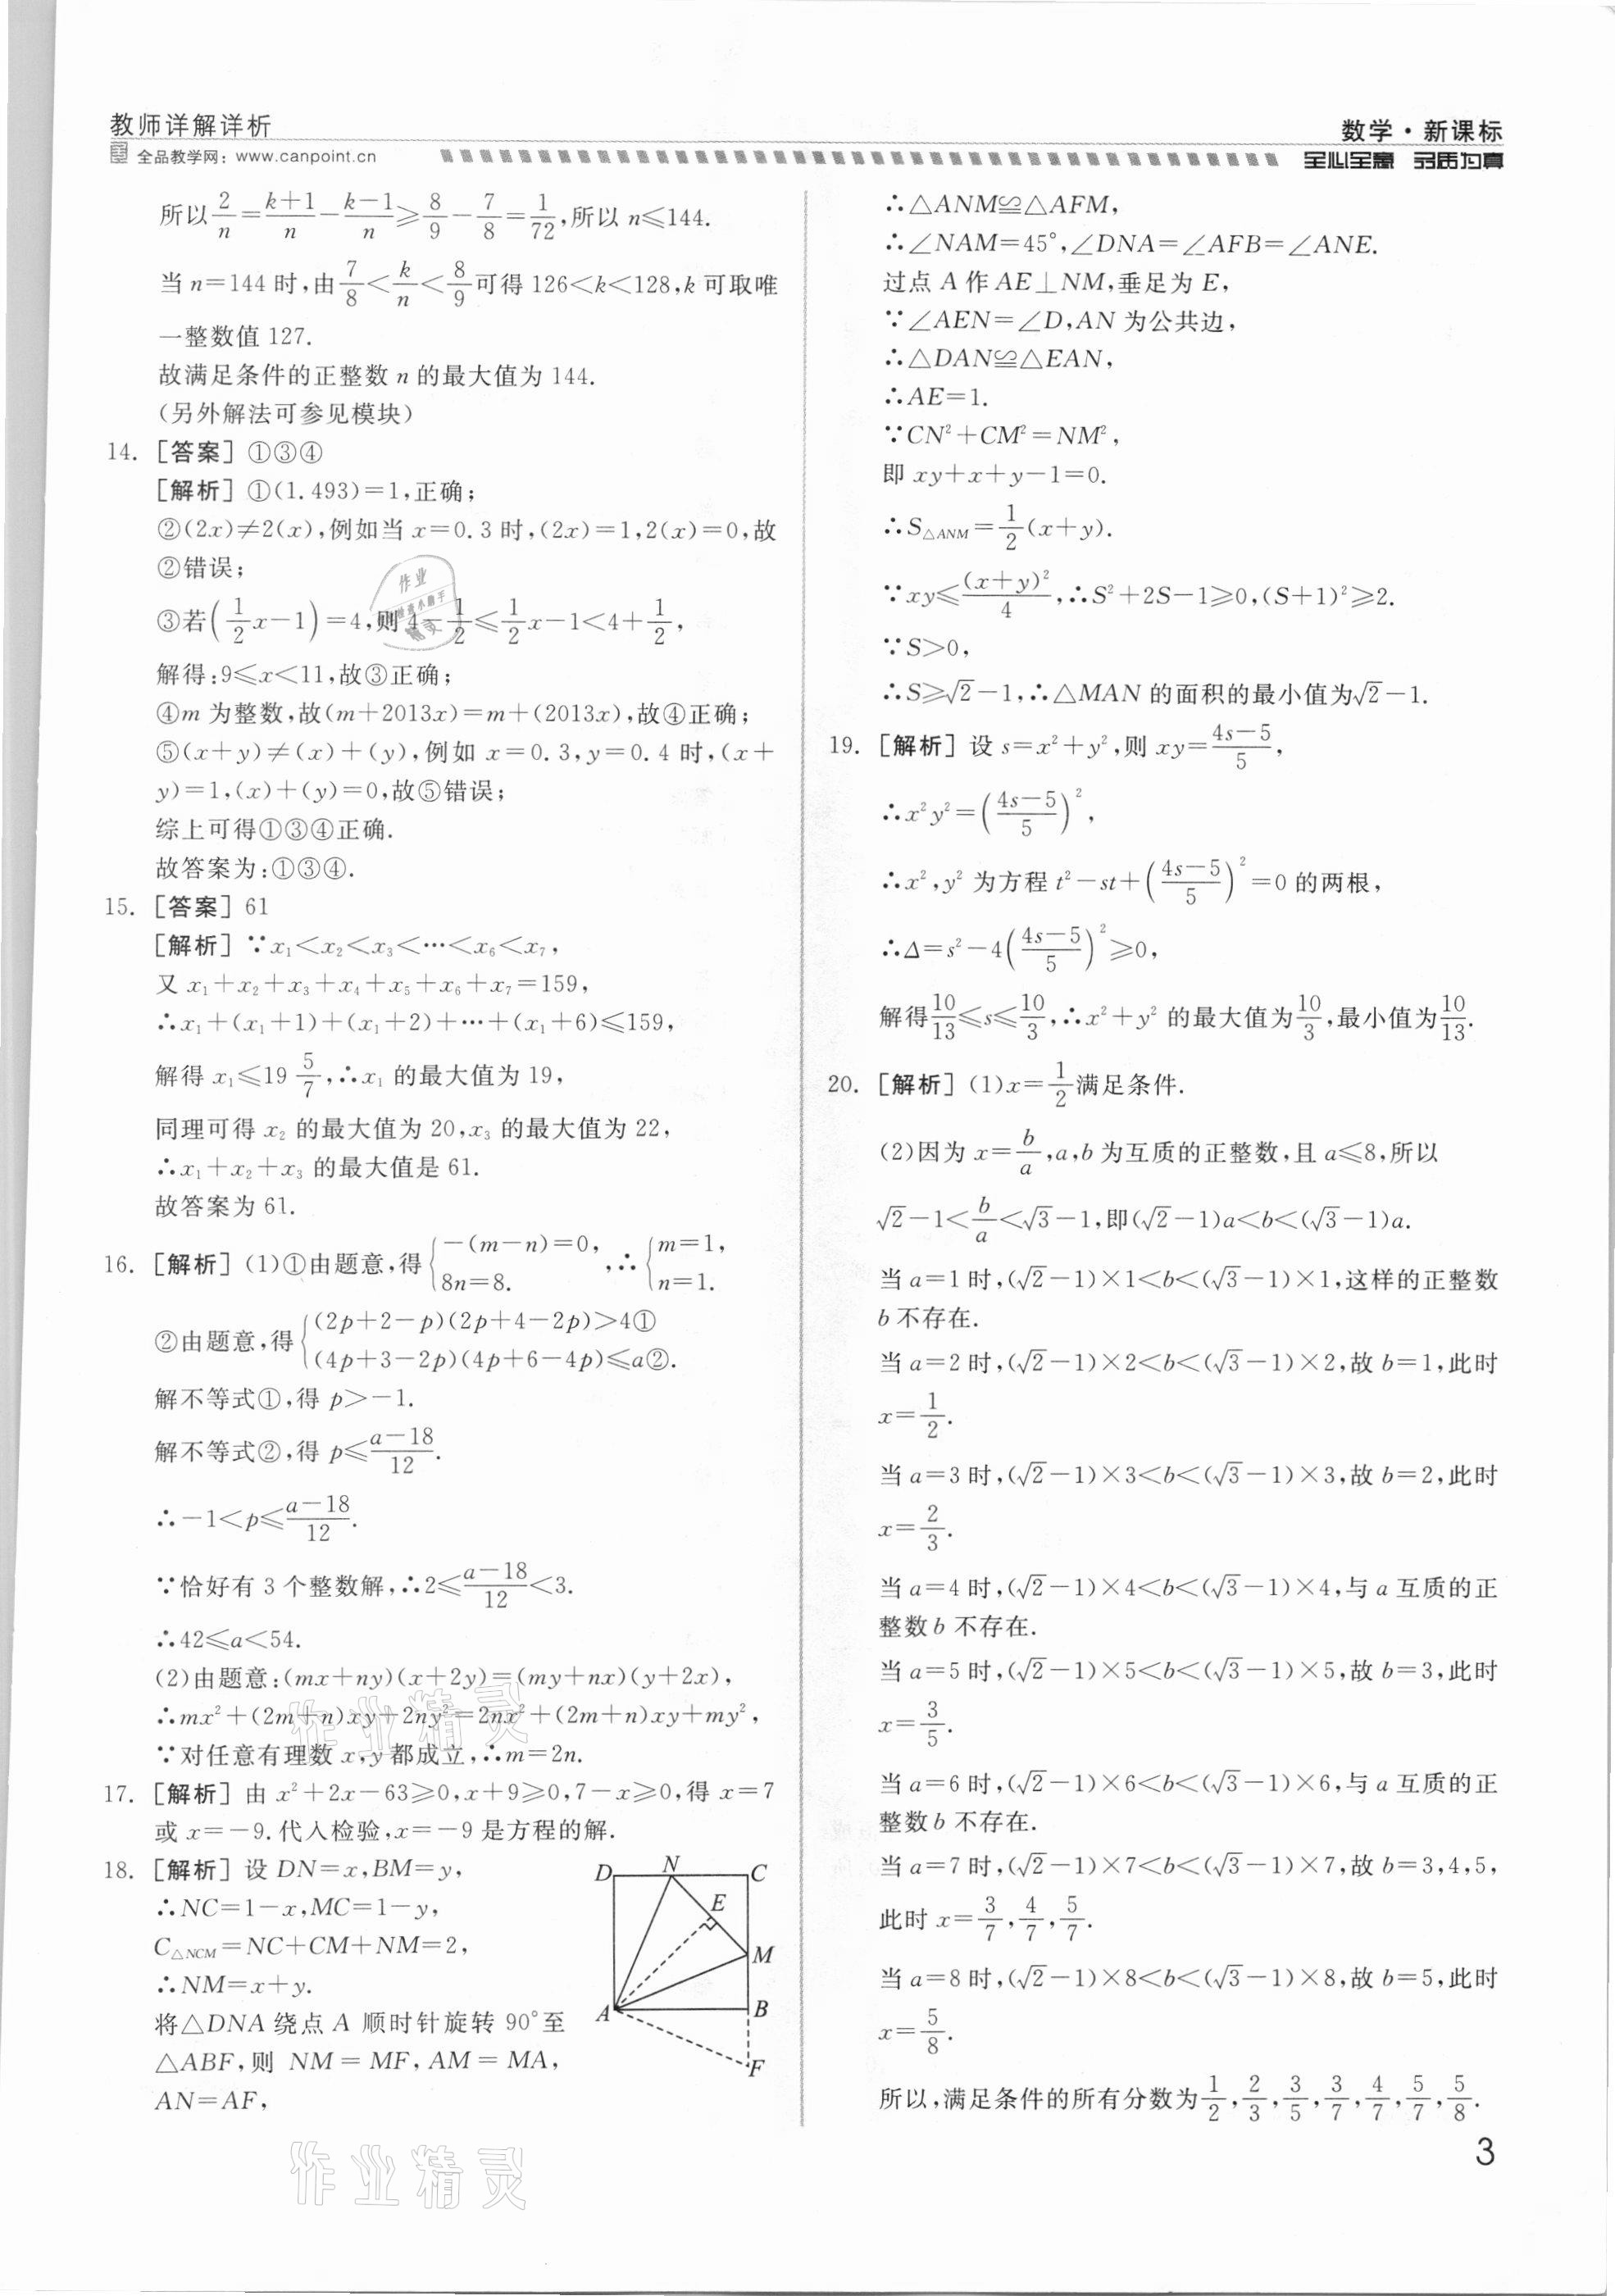 教师详解详析
全品教学网：www.canpoint.cn
数学·新课标
全心全意 品质为真
所以2/n=(k+1)/n-(k-1)/n≥8/9-7/8=1/72,所以 n≤144.
当 n=144 时,由7/8<k/n<8/9可得 126<k<128,k 可取唯
一整数值 127.
故满足条件的正整数 n 的最大值为 144.
(另外解法可参见模块)
14. [答案] ①③④
[解析] ①(1.493)=1,正确;
②(2x)≠2(x),例如当 x=0.3 时,(2x)=1,2(x)=0,故
②错误;
③若(1/2x-1)=4,则 4-1/2≤1/2x-1<4+1/2,
解得:9≤x<11,故③正确;
④m 为整数,故(m+2013x)=m+(2013x),故④正确;
⑤(x+y)≠(x)+(y),例如 x=0.3,y=0.4 时,(x+
y)=1,(x)+(y)=0,故⑤错误;
综上可得①③④正确.
故答案为:①③④.
15. [答案] 61
[解析] ∵x₁<x₂<x₃<…<x₆<x₇,
又 x₁+x₂+x₃+x₄+x₅+x₆+x₇=159,
∴x₁+(x₁+1)+(x₁+2)+…+(x₁+6)≤159,
解得 x₁≤19 5/7,∴x₁ 的最大值为 19,
同理可得 x₂ 的最大值为 20,x₃ 的最大值为 22,
∴x₁+x₂+x₃ 的最大值是 61.
故答案为 61.
16. [解析] (1)①由题意,得{-(m-n)=0, 8n=8. ,∴{m=1, n=1.
②由题意,得{(2p+2-p)(2p+4-2p)>4① (4p+3-2p)(4p+6-4p)≤a②.
解不等式①,得 p>-1.
解不等式②,得 p≤(a-18)/12.
∴-1<p≤(a-18)/12.
∵恰好有 3 个整数解,∴2≤(a-18)/12<3.
∴42≤a<54.
(2)由题意:(mx+ny)(x+2y)=(my+nx)(y+2x),
∴mx²+(2m+n)xy+2ny²=2nx²+(2m+n)xy+my²,
∵对任意有理数 x,y 都成立,∴m=2n.
17. [解析] 由 x²+2x-63≥0,x+9≥0,7-x≥0,得 x=7
或 x=-9.代入检验,x=-9 是方程的解.
18. [解析] 设 DN=x,BM=y,
∴NC=1-x,MC=1-y,
C△NCM=NC+CM+NM=2,
∴NM=x+y.
将△DNA 绕点 A 顺时针旋转 90°至
△ABF,则 NM=MF,AM=MA,
AN=AF,
D N C
E
M
A B
F
∴△ANM≌△AFM,
∴∠NAM=45°,∠DNA=∠AFB=∠ANE.
过点 A 作 AE⊥NM,垂足为 E,
∵∠AEN=∠D,AN 为公共边,
∴△DAN≌△EAN,
∴AE=1.
∵CN²+CM²=NM²,
即 xy+x+y-1=0.
∴S△ANM=1/2(x+y).
∵xy≤(x+y)²/4,∴S²+2S-1≥0,(S+1)²≥2.
∵S>0,
∴S≥√2-1,∴△MAN 的面积的最小值为√2-1.
19. [解析] 设 s=x²+y²,则 xy=(4s-5)/5,
∴x²y²=((4s-5)/5)²,
∴x²,y² 为方程 t²-st+((4s-5)/5)²=0 的两根,
∴Δ=s²-4((4s-5)/5)²≥0,
解得10/13≤s≤10/3,∴x²+y² 的最大值为10/3,最小值为10/13.
20. [解析] (1)x=1/2满足条件.
(2)因为 x=b/a,a,b 为互质的正整数,且 a≤8,所以
√2-1<b/a<√3-1,即(√2-1)a<b<(√3-1)a.
当 a=1 时,(√2-1)×1<b<(√3-1)×1,这样的正整数
b 不存在.
当 a=2 时,(√2-1)×2<b<(√3-1)×2,故 b=1,此时
x=1/2.
当 a=3 时,(√2-1)×3<b<(√3-1)×3,故 b=2,此时
x=2/3.
当 a=4 时,(√2-1)×4<b<(√3-1)×4,与 a 互质的正
整数 b 不存在.
当 a=5 时,(√2-1)×5<b<(√3-1)×5,故 b=3,此时
x=3/5.
当 a=6 时,(√2-1)×6<b<(√3-1)×6,与 a 互质的正
整数 b 不存在.
当 a=7 时,(√2-1)×7<b<(√3-1)×7,故 b=3,4,5,
此时 x=3/7,4/7,5/7.
当 a=8 时,(√2-1)×8<b<(√3-1)×8,故 b=5,此时
x=5/8.
所以,满足条件的所有分数为1/2,2/3,3/5,3/7,4/7,5/7,5/8.
3
作业精灵
作业精灵